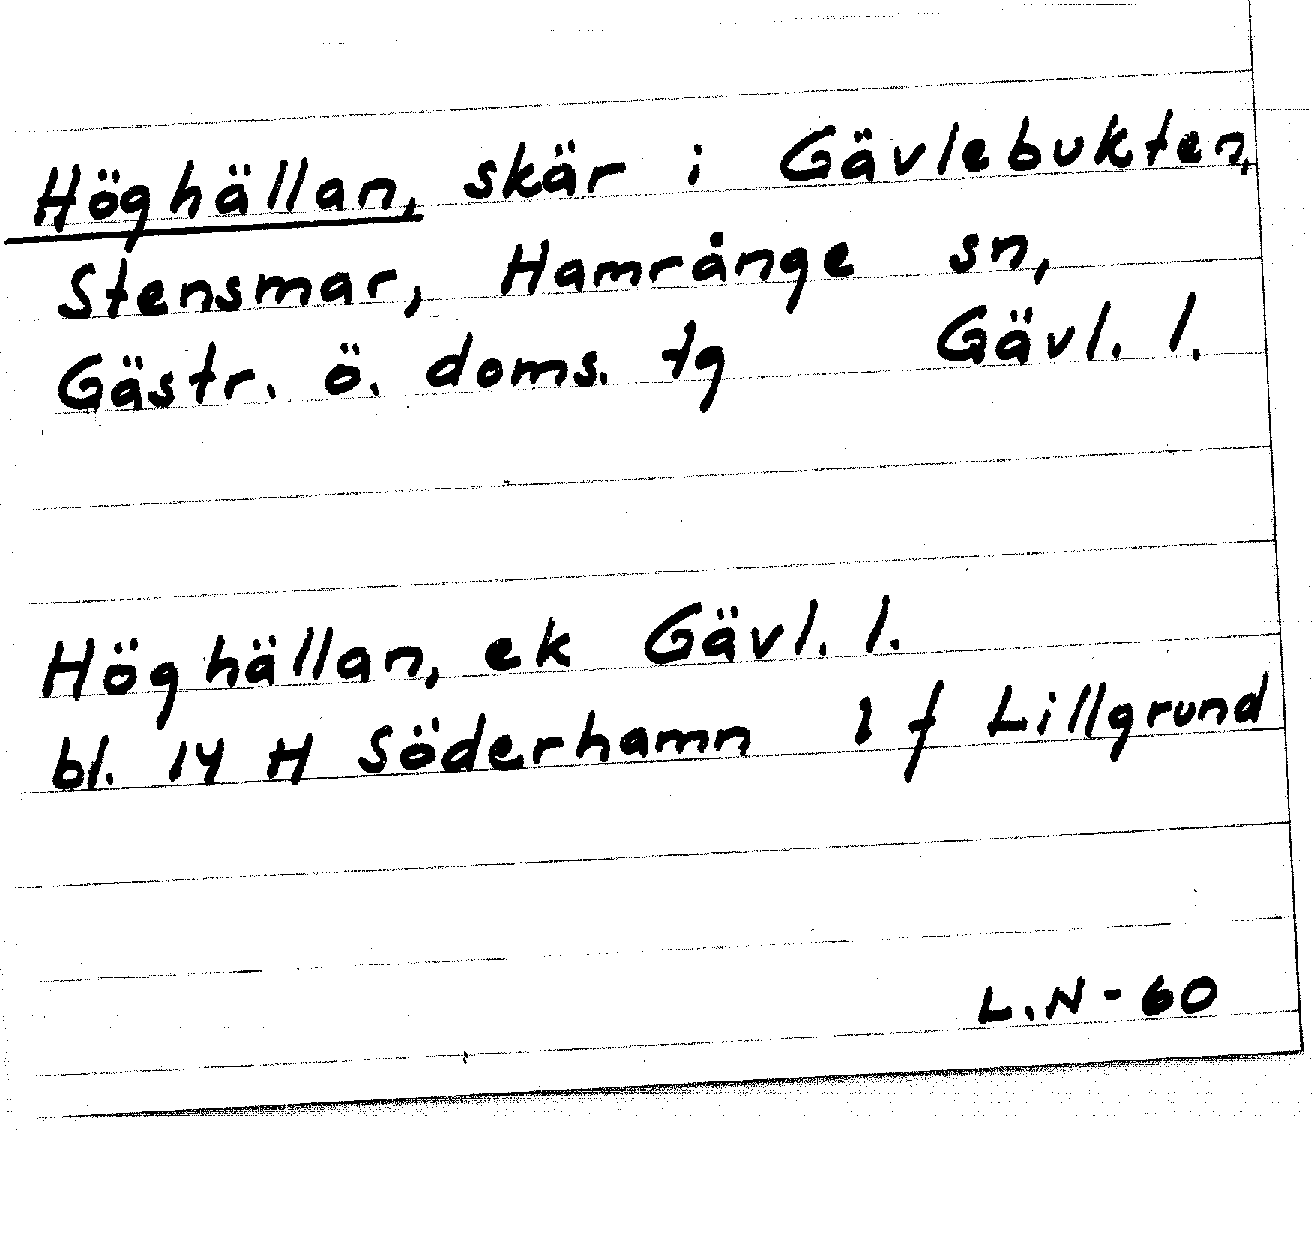 Höghällan, skär i Gävlebukten,
Stensmar, Hamrånge sn,
Gästr. ö. doms. tg Gävl. l.
Höghällan, ek Gävl. l.
bl. 14 H Söderhamn 1 f Lillgrund
L.N - 60